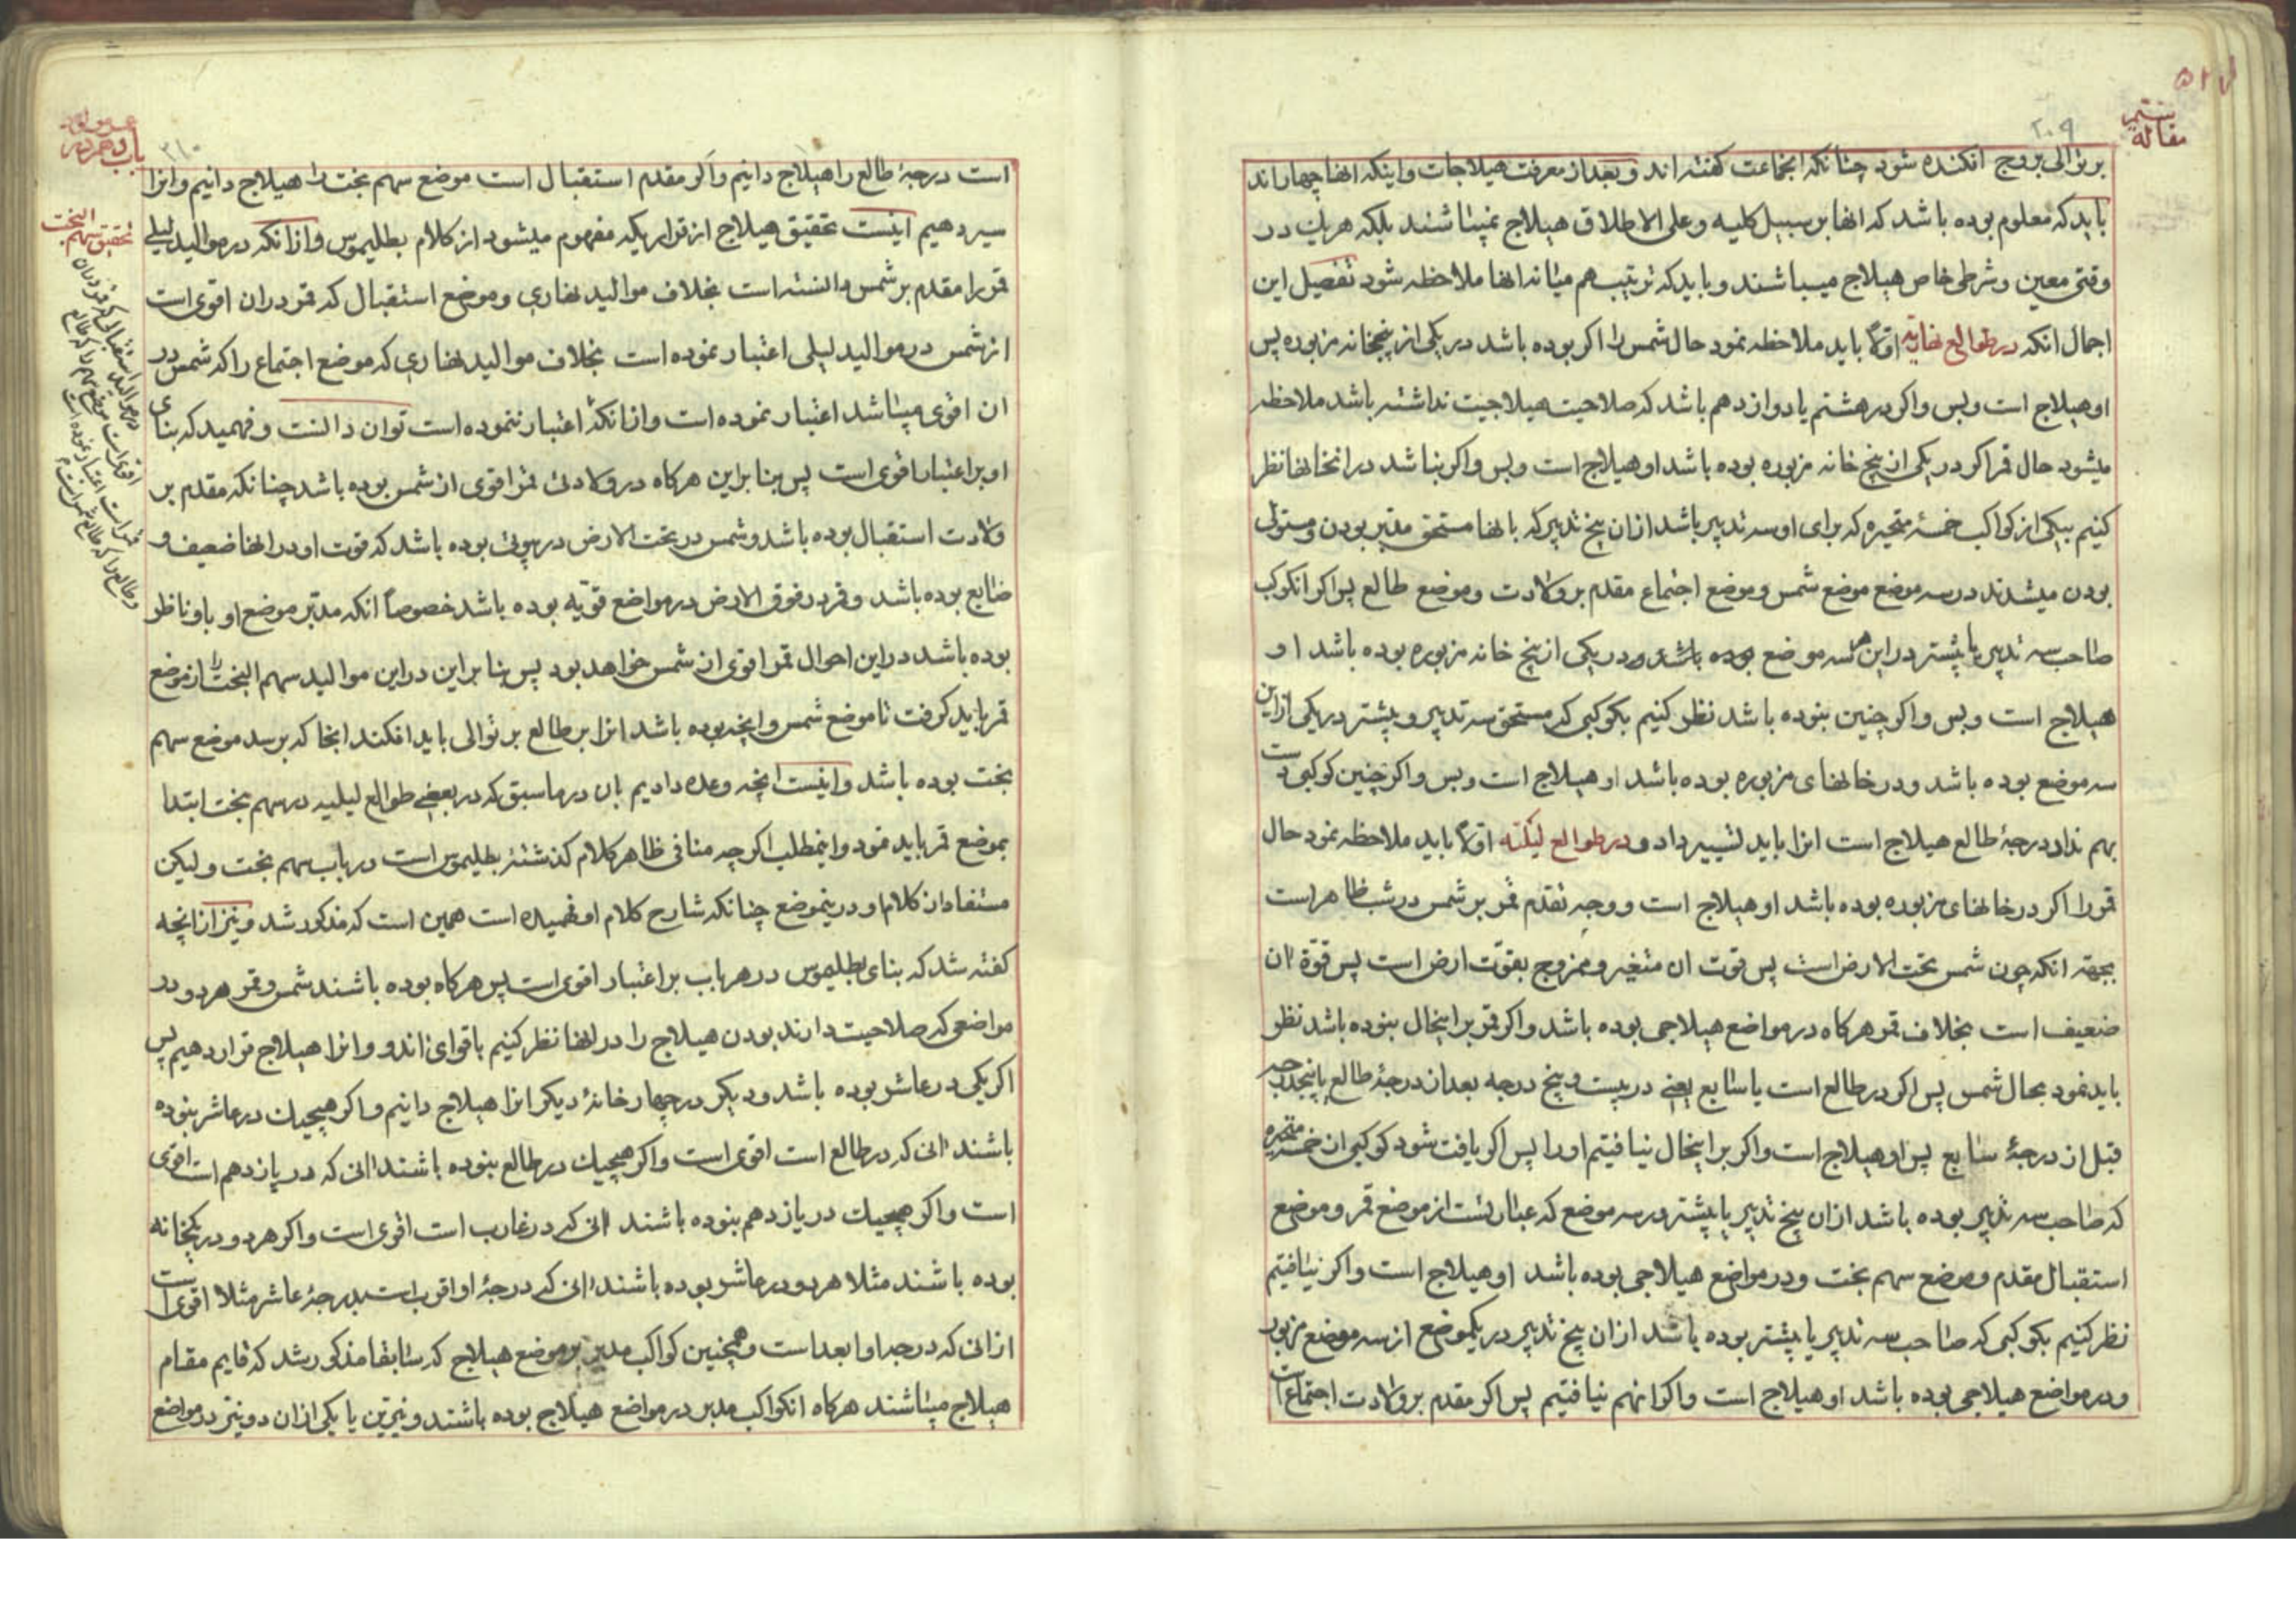 مقاله ششم
۲۰۹
بر توالی بروج افکنده شود چنانکه انجماعت کفته‌اند و بعد از معرفت هیلاجات و اینکه انها چهاراند
باید که معلوم بوده باشد که انها بر سبیل کلیه و علی الاطلاق هیلاج نمیباشند بلکه هر یک در
وقتی معین و شرطی خاص هیلاج میباشند و باید که ترتیب هم میانه انها ملاحظه شود تفصیل این
اجمال انکه در طوالع نهاریّه اوّلاً باید ملاحظه نمود حال شمس را اکر بوده باشد در یکی از پنجخانه مزبوره پس
او هیلاج است و بس و اکر در هشتم یا دوازدهم باشد که صلاحیت هیلاجیت نداشته باشد ملاحظه
میشود حال قمر اکر در یکی از پنج خانه مزبوره بوده باشد او هیلاج است و بس و اکر نباشد در انخانها نظر
کنیم بیکی از کواکب خمسهٔ متحیره که برای او سه تدبیر باشد از ان پنج تدبیر که بانها مستحق مدبّر بودن و مستولی
بودن میشدند در سه موضع موضع شمس و موضع اجتماع مقدم بر ولادت و موضع طالع پس اکر انکوکب
صاحب سه تدبیر یا بیشتر در این هر سه موضع بوده باشد و در یکی از پنج خانه مزبوره بوده باشد او
هیلاج است و بس و اکر چنین نبوده باشد نظر کنیم بکوکبی که مستحق سه تدبیر و بیشتر در یکی از این
سه موضع بوده باشد و در خانهای مزبوره بوده باشد او هیلاج است و بس و اکر چنین کوکبی دست
بهم نداد درجهٔ طالع هیلاج است انرا باید تسییر داد و در طوالع لیلیّه اوّلا باید ملاحظه نمود حال
قمر را اکر در خانهای مزبوره بوده باشد او هیلاج است و وجه تقدم قمر بر شمس در شب ظاهر است
بجهة انکه چون شمس تحت الارض است پس قوت ان متغیر و ممزوج بقوّت ارض است پس قوّة ان
ضعیف است بخلاف قمر هرکاه در مواضع هیلاجی بوده باشد و اکر قمر بر اینحال نبوده باشد نظر
باید نمود بحال شمس پس اکر در طالع است یا سابع یعنی در بیست و پنج درجه بعد از درجهٔ طالع یا پنجدرجه
قبل از درجهٔ سابع پس او هیلاج است و اکر بر اینحال نیافتیم او را پس اکر یافت شود کوکبی از خمسه متحیره
که صاحب سه تدبیر بوده باشد از ان پنج تدبیر یا بیشتر در سه موضع که عبارتست از موضع قمر و موضع
استقبال مقدم و موضع سهم بخت و در مواضع هیلاجی بوده باشد او هیلاج است و اکر نیافتیم
نظر کنیم بکوکبی که صاحب سه تدبیر یا بیشتر بوده باشد از ان پنج تدبیر در یکموضع از سه موضع مزبور
و در مواضع هیلاجی بوده باشد او هیلاج است و اکر انهم نیافتیم پس اکر مقدم بر ولادت اجتماع است
۲۱۰
است درجهٔ طالع را هیلاج دانیم و اکر مقدم استقبال است موضع سهم بخت را هیلاج دانیم و انرا
سیر دهیم اینست تحقیق هیلاج از قراریکه مفهوم میشود از کلام بطلیموس و از انکه در موالید لیلی
قمر را مقدم بر شمس دانسته است بخلاف موالید نهاری و موضع استقبال که قمر در ان اقوی است
از شمس در موالید لیلی اعتبار نموده است بخلاف موالید نهاری که موضع اجتماع را که شمس در
ان اقوی میباشد اعتبار نموده است و از انکهٔ اعتبار ننموده است توان دانست و فهمید که بنای
او بر اعتبار اقوی است پس بنا براین هرکاه در ولادتی قمر اقوی از شمس بوده باشد چنانکه مقدم بر
ولادت استقبال بوده باشد و شمس در تحت الارض در بیوتی بوده باشد که قوت او در انها ضعیف و
ضایع بوده باشد و قمر در فوق الارض در مواضع قویّه بوده باشد خصوصاً انکه مدبّر موضع او باو ناظر
بوده باشد در این احوال قمر اقوی از شمس خواهد بود پس بنا براین در این موالید سهم البخت را از موضع
قمر باید کرفت تا موضع شمس و انچه بوده باشد انرا بر طالع بر توالی باید افکند انجا که برسد موضع سهم
بخت بوده باشد و اینست انچه وعده دادیم بان در ماسبق که در بعضی طوالع لیلیه در سهم بخت ابتدا
بموضع قمر باید نمود و اینمطلب اکر چه منافی ظاهر کلام کذشتهٔ بطلیموس است در باب سهم بخت و لیکن
مستفاد از کلام او در ینموضع چنانکه شارح کلام او فهمیده است همین است که مذکور شد و نیز از انچه
کفته شد که بنای بطلیموس در هر باب بر اعتبار اقوی است پس هرکاه بوده باشند شمس و قمر هر دو در
مواضعی که صلاحیت دارند بودن هیلاج را در انها نظر کنیم باقوای ان دو و انرا هیلاج قرار دهیم پس
اکر یکی در عاشر بوده باشد و دیکر در چهار خانهٔ دیکر انرا هیلاج دانیم و اکر هیچیک در عاشر نبوده
باشند انی که در طالع است اقوی است و اکر هیچیک در طالع نبوده باشند انی که در یازدهم است اقوی
است و اکر هیچیک در یازدهم نبوده باشند انی که در غارب است اقوی است و اکر هر دو در یکخانه
بوده باشند مثلا هر دو در عاشر بوده باشند انی که درجهٔ او اقرب است بدرجهٔ عاشر مثلا اقوی است
از انی که درجه او ابعد است و همچنین کواکب مدبر بر موضع هیلاج که سابقا مذکور شد که قایم مقام
هیلاج میباشند هرکاه انکواکب مدبر در مواضع هیلاج بوده باشند و نیّرین یا یکی از ان دو نیّر در مواضع
تحقیق سهم البخت